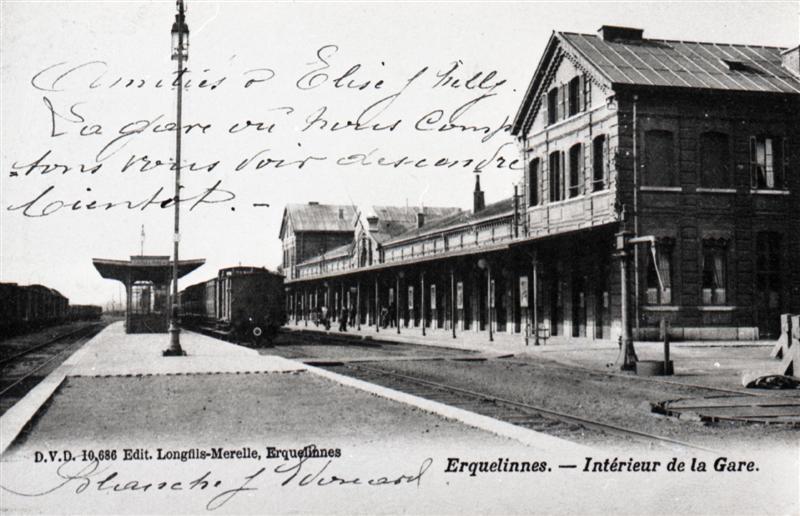 Amitiés à Elise & Willy.
La gare où nous comp
tons vous voir descendre
bientôt. -
D.V.D. 10,686 Edit. Longfils-Merelle, Erquelinnes
Erquelinnes. — Intérieur de la Gare.
Blanche & Edouard